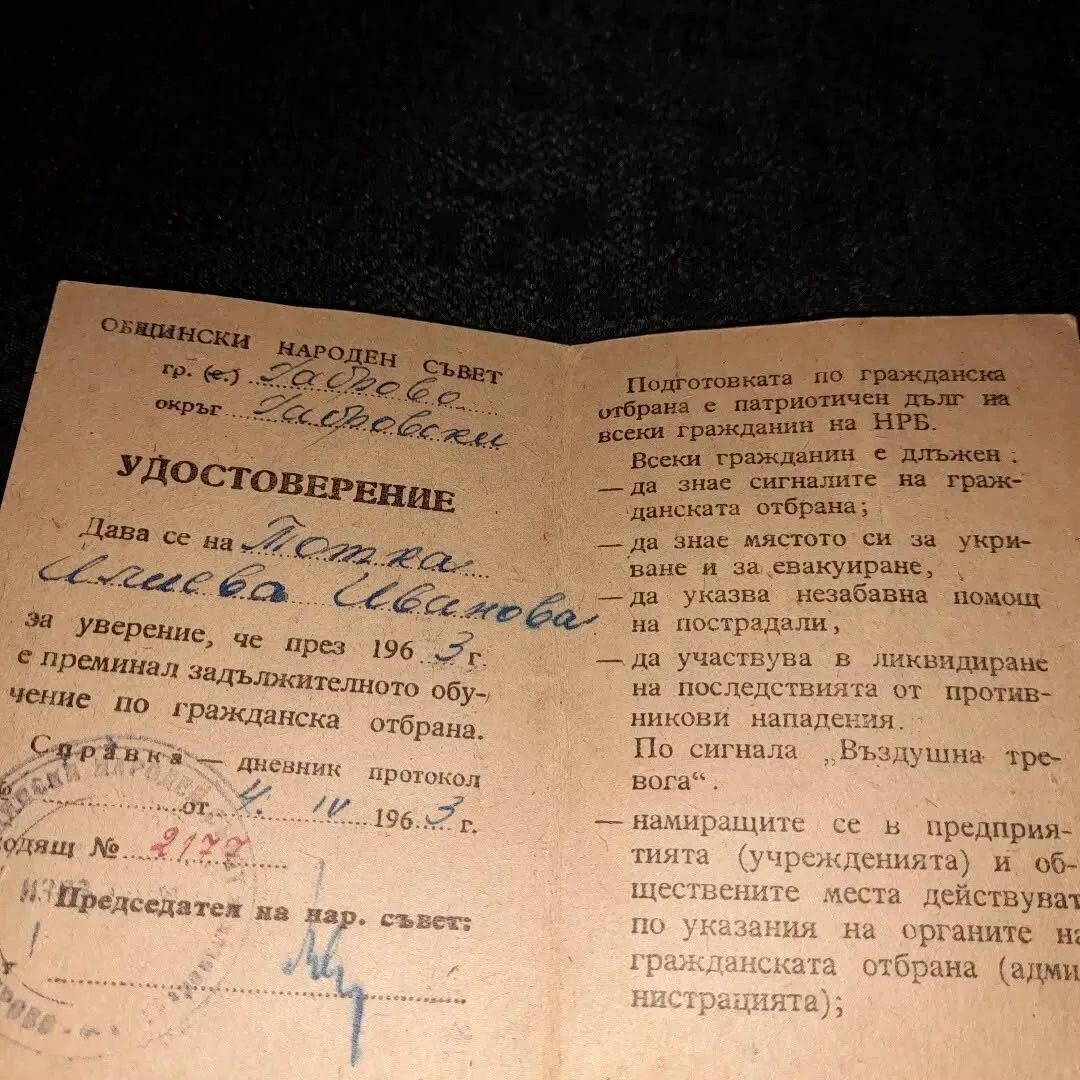 ОБЩИНСКИ НАРОДЕН СЪВЕТ
гр. (с.) Габрово
окръг Габровски
УДОСТОВЕРЕНИЕ
Дава се на Тотка
Илиева Иванова
за уверение, че през 1963 г.
е преминал задължителното обу-
чение по гражданска отбрана.
Справка — дневник протокол
от 4. IV 1963 г.
одящ № 2177
Председател на нар. съвет:
Подготовката по гражданска
отбрана е патриотичен дълг на
всеки гражданин на НРБ.
Всеки гражданин е длъжен:
— да знае сигналите на граж-
данската отбрана;
— да знае мястото си за укри-
ване и за евакуиране,
— да указва незабавна помощ
на пострадали,
— да участвува в ликвидиране
на последствията от против-
никови нападения.
По сигнала „Въздушна тре-
вога“.
— намиращите се в предприя-
тията (учрежденията) и об-
ществените места действуват
по указания на органите на
гражданската отбрана (адми
нистрацията);